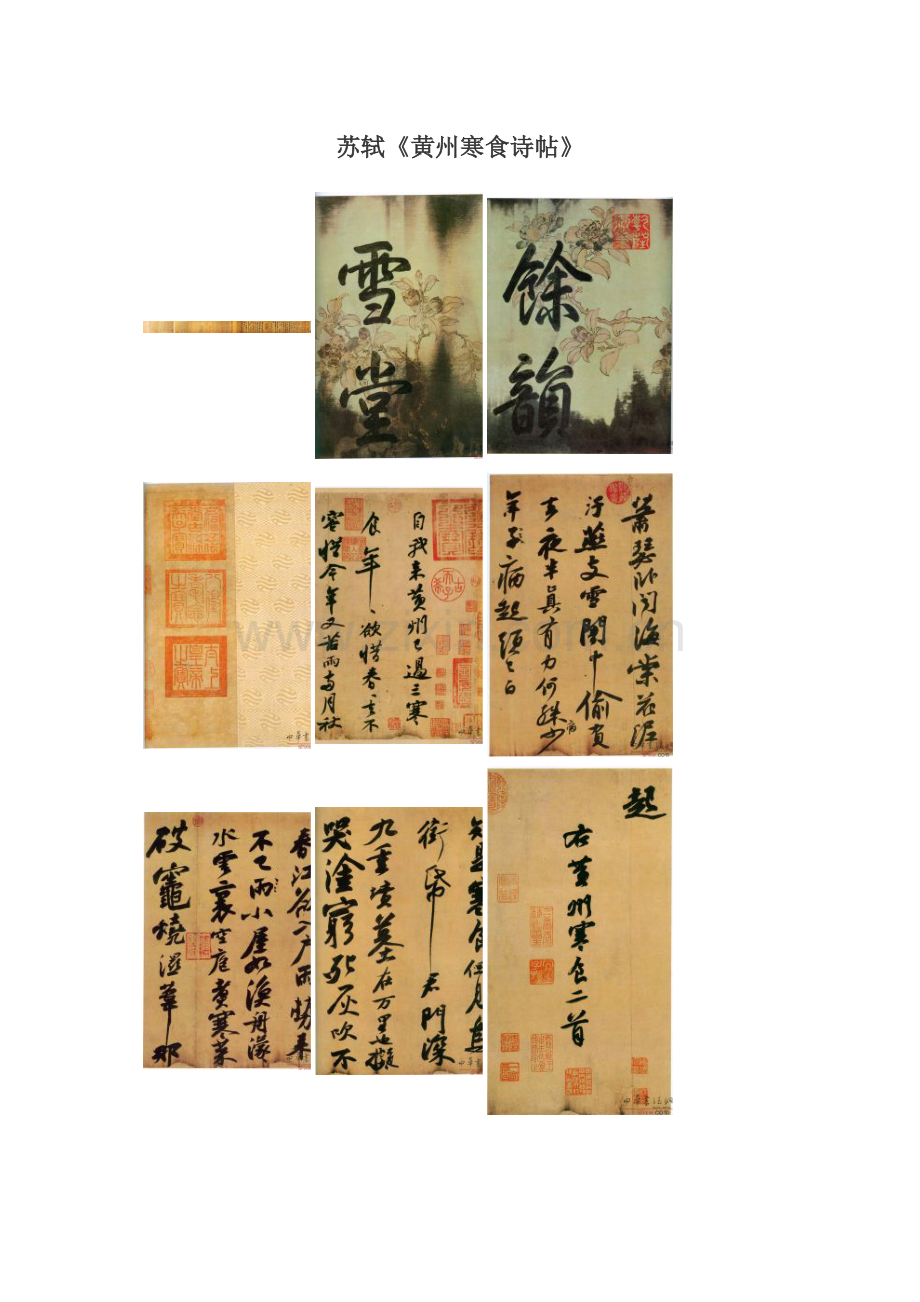 苏轼《黄州寒食诗帖》
雪堂
餘韻
自我来黄州已過三寒
食年〻欲惜春〻去不
容惜今年又苦雨兩月秋
蕭瑟卧聞海棠花泥
汙燕支雪闇中偷負
去夜半真有力何殊少
年子病起頭已白
病
春江欲入户雨勢来
不已雨小屋如漁舟濛
水雲裏空庖煮寒菜
破竈燒濕葦那
知是寒食但見烏
銜帋君門深
九重墳墓在万里也擬
哭塗窮死灰吹不
起
右黄州寒食二首